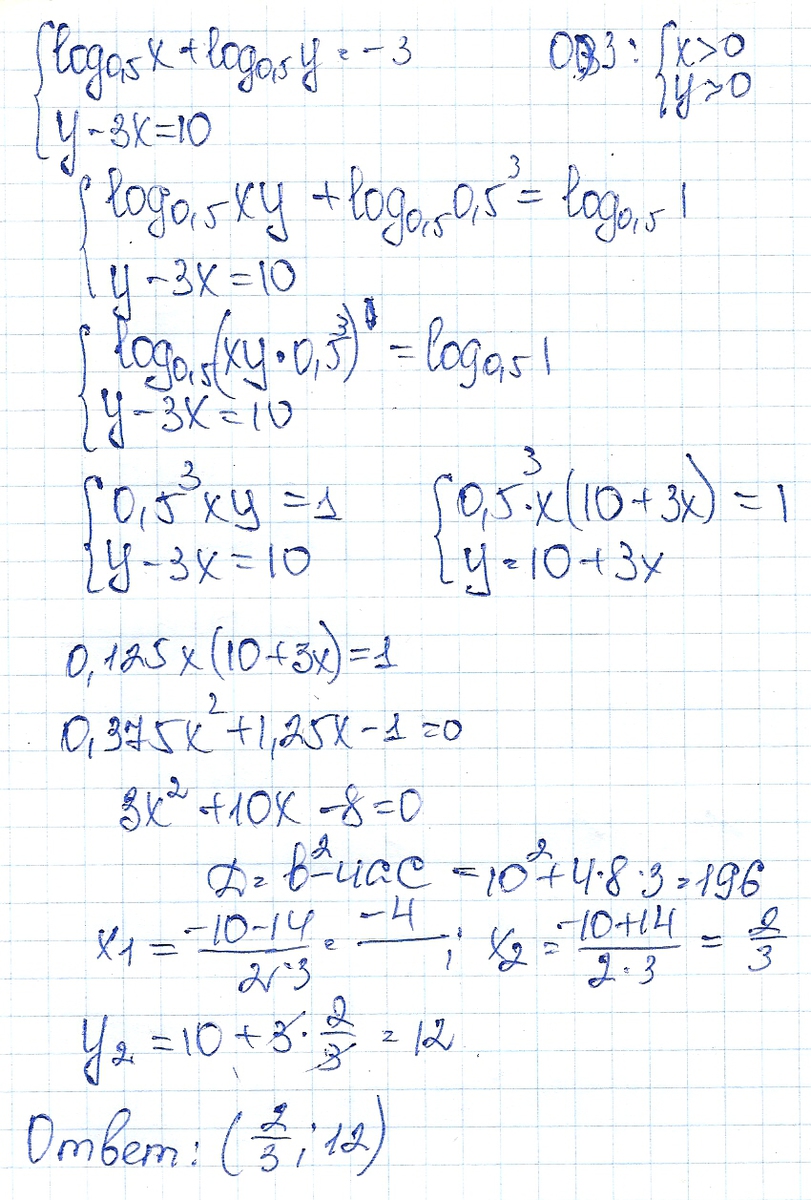 { log₀,₅x + log₀,₅y = -3 ОДЗ: { x>0
y - 3x = 10 y>0
{ log₀,₅xy + log₀,₅0,5³ = log₀,₅1
y - 3x = 10
{ log₀,₅(xy·0,5³) = log₀,₅1
y - 3x = 10
{ 0,5³xy = 1 { 0,5³·x(10+3x) = 1
y - 3x = 10 y = 10+3x
0,125x(10+3x)=1
0,375x²+1,25x-1=0
3x²+10x-8=0
D = b²-4ac = 10²+4·8·3=196
x₁ = (-10-14)/(2·3) = -4/ ; x₂ = (-10+14)/(2·3) = 2/3
y₂ = 10+3·2/3 = 12
Ответ: (2/3; 12)